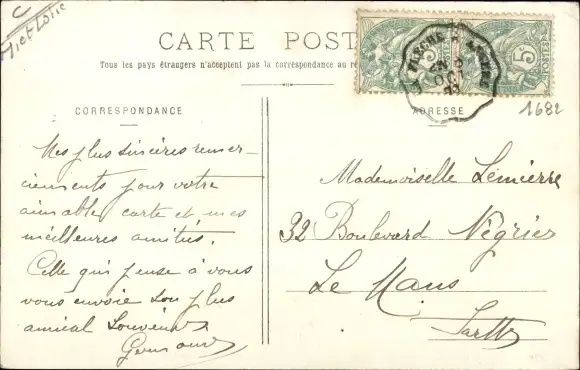 C
M et Loire
CARTE POST
Tous les pays étrangers n'acceptent pas la correspondance au re
CORRESPONDANCE
ADRESSE
1682
5
Mes plus sincères remer-
ciements pour votre
aimable carte et mes
meilleures amitiés.
Celle qui pense à vous
vous envoie son plus
amical Souvenir
Mademoiselle Lemierre
32 Boulevard Négrier
Le Mans
Sarthe